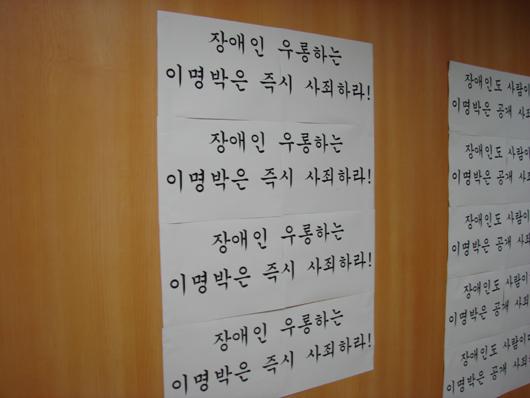 장애인 우롱하는
이명박은 즉시 사죄하라!
장애인 우롱하는
이명박은 즉시 사죄하라!
장애인 우롱하는
이명박은 즉시 사죄하라!
장애인 우롱하는
이명박은 즉시 사죄하라!
장애인도 사람이
이명박은 공개 사죄
장애인도 사람이
이명박은 공개 사죄
장애인도 사람이
이명박은 공개 사죄
장애인도 사람이
이명박은 공개 사죄
장애인도 사람이
이명박은 공개 사죄